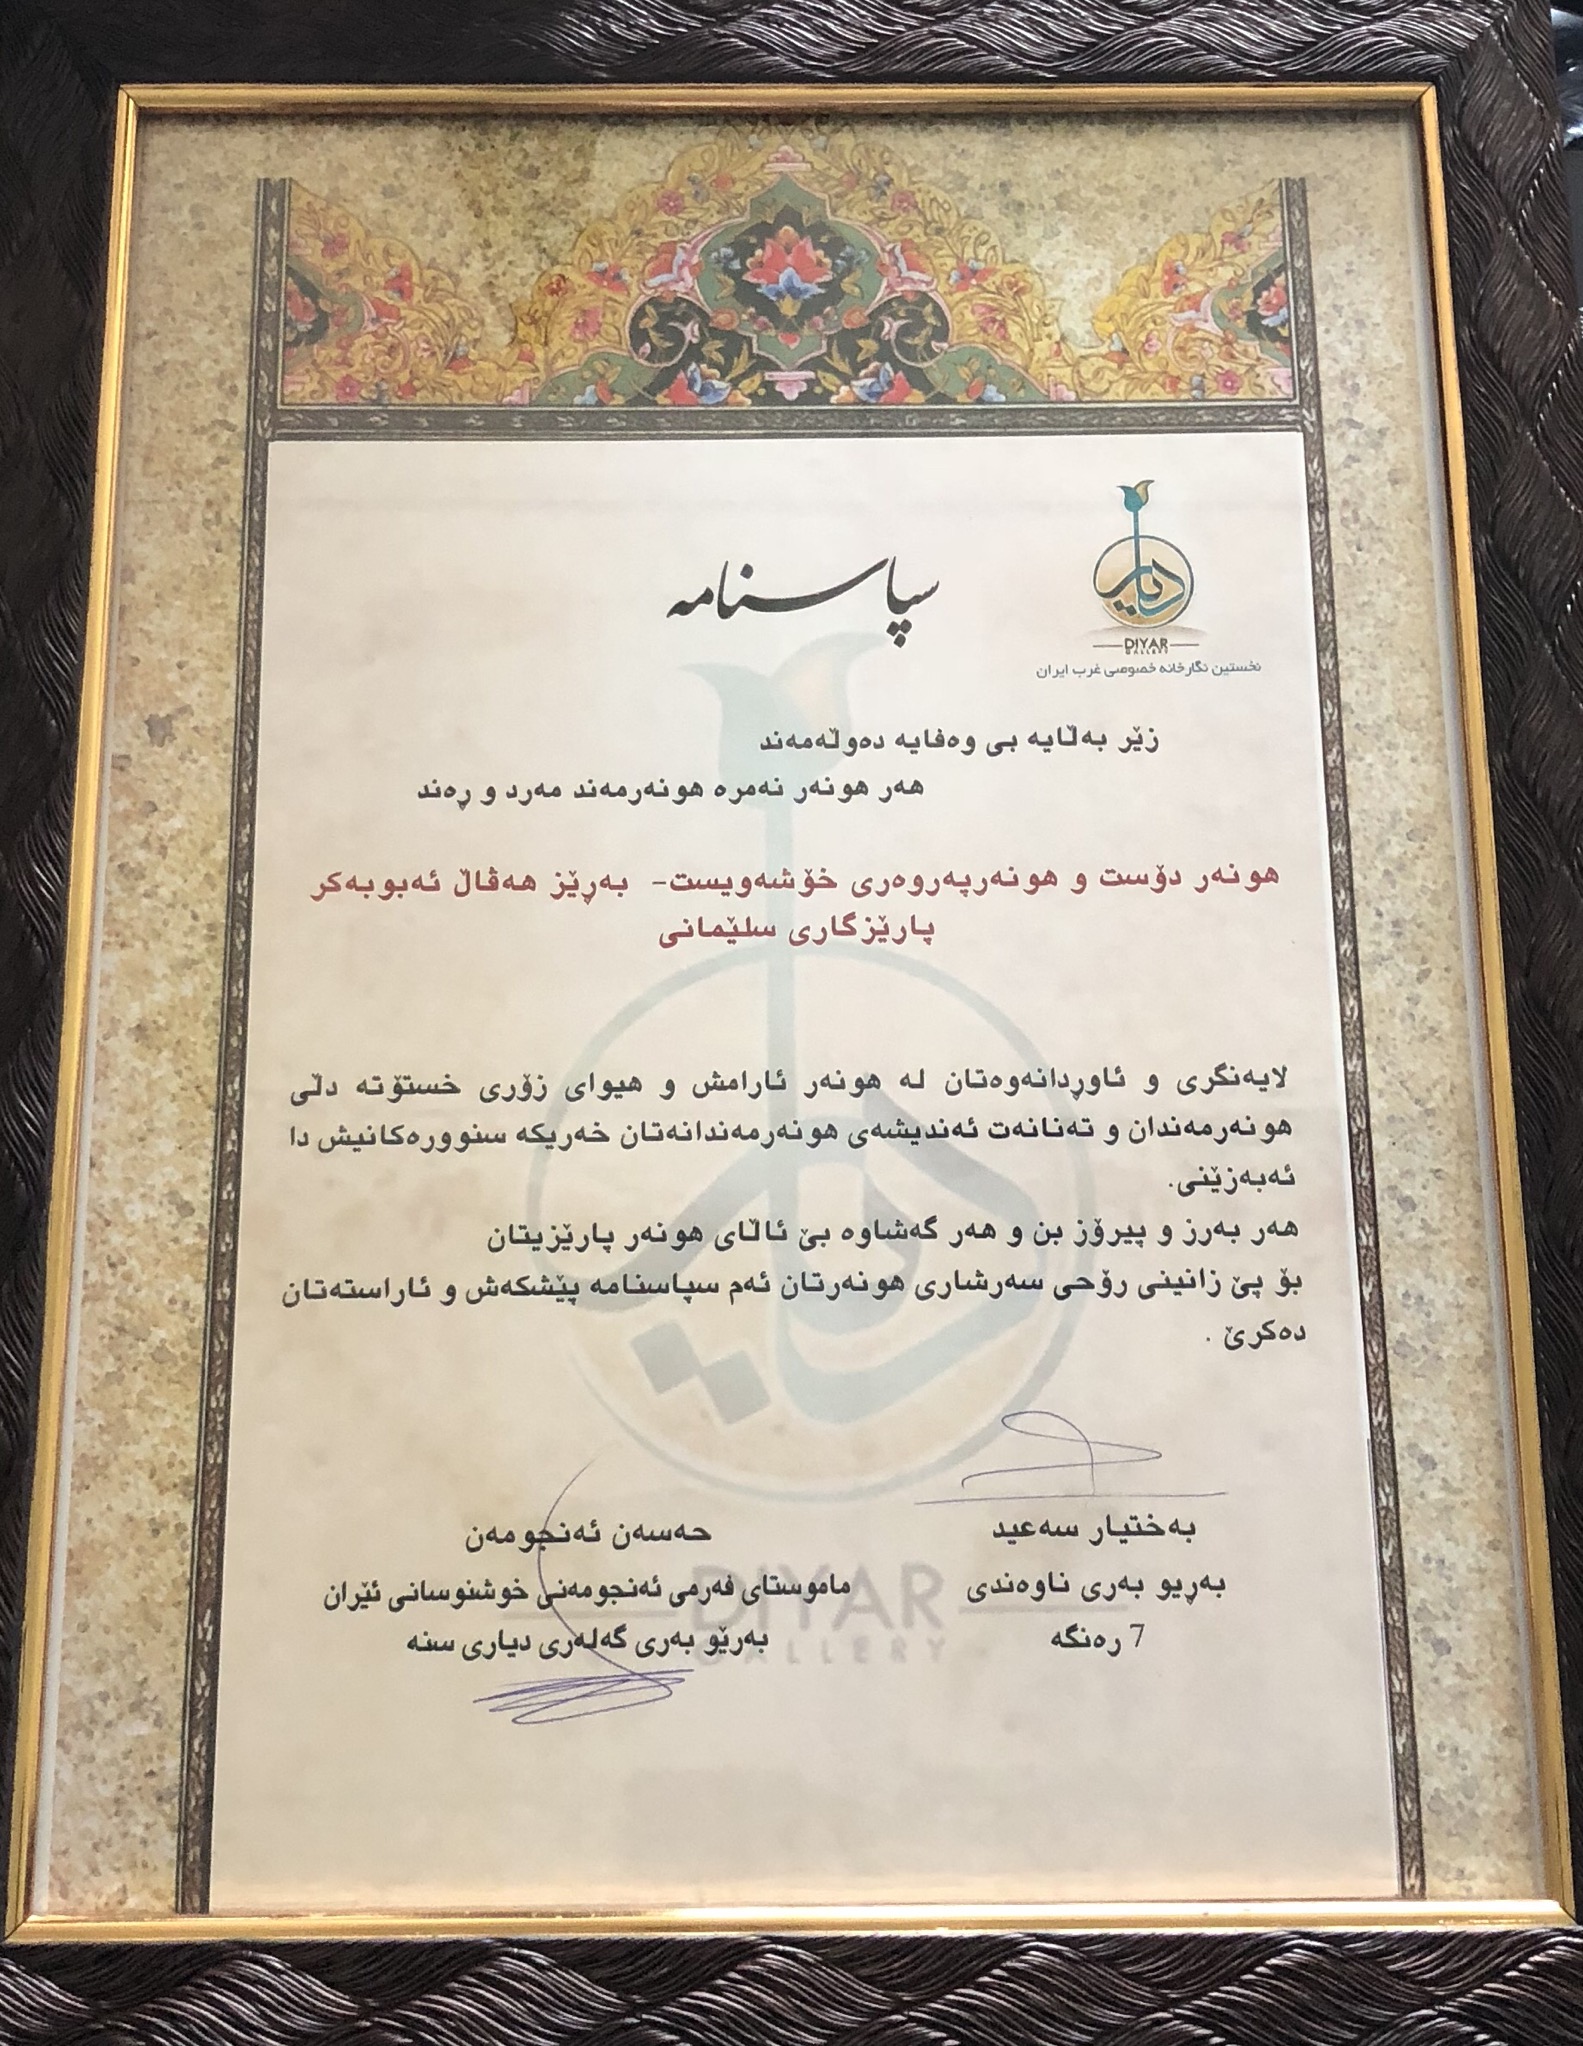 سپاسنامە
دیار
DIYAR
GALLERY
نخستین نگارخانه خصوصی غرب ایران
زێر بەڵایە بی وەفایە دەوڵەمەند
هەر هونەر نەمرە هونەرمەند مەرد و ڕەند
هونەر دۆست و هونەرپەروەری خۆشەویست- بەڕێز هەڤاڵ ئەبوبەکر
پارێزگاری سلێمانی
لایەنگری و ئاوڕدانەوەتان لە هونەر ئارامش و هیوای زۆری خستۆتە دڵی
هونەرمەندان و تەنانەت ئەندیشەی هونەرمەندانەتان خەریکە سنوورەکانیش دا
ئەبەزێنی.
هەر بەرز و پیرۆز بن و هەر گەشاوە بێ ئاڵای هونەر پارێزیتان
بۆ پێ زانینی رۆحی سەرشاری هونەرتان ئەم سپاسنامە پێشکەش و ئاراستەتان
دەکرێ .
بەختیار سەعید
بەڕیو بەری ناوەندی
7 رەنگە
حەسەن ئەنجومەن
ماموستای فەرمی ئەنجومەنی خوشنوسانی ئێران
بەرێو بەری گەلەری دیاری سنە
DIYAR
GALLERY